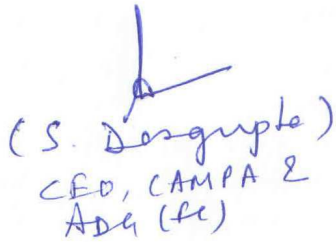 (S. Dasgupta)
CEO, CAMPA &
ADG (FC)